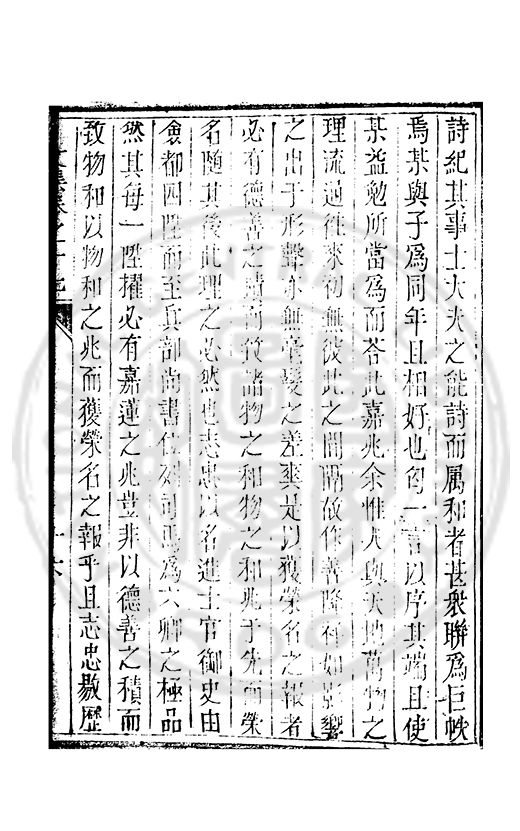 詩紀其事士大夫之能詩而属和者甚衆聯爲巨帙
焉某與子爲同年且相好也匄一言以序其端且使
某益勉所當爲而荅此嘉兆余惟人與天地萬物之
理流通往来初無彼此之間隔故作善降祥如影響
之出于形聲亦無毫髮之差爽是以獲榮名之報者
必有德善之積而致諸物之和物之和兆于先而榮
名随其後此理之必然也志忠以名進士官御史由
僉都四陞而至兵部尚書位列司馬爲六卿之極品
然其每一陞擢必有嘉蓮之兆豈非以德善之積而
致物和以物和之兆而獲榮名之報乎且志忠敭歴
文集卷之十
十六